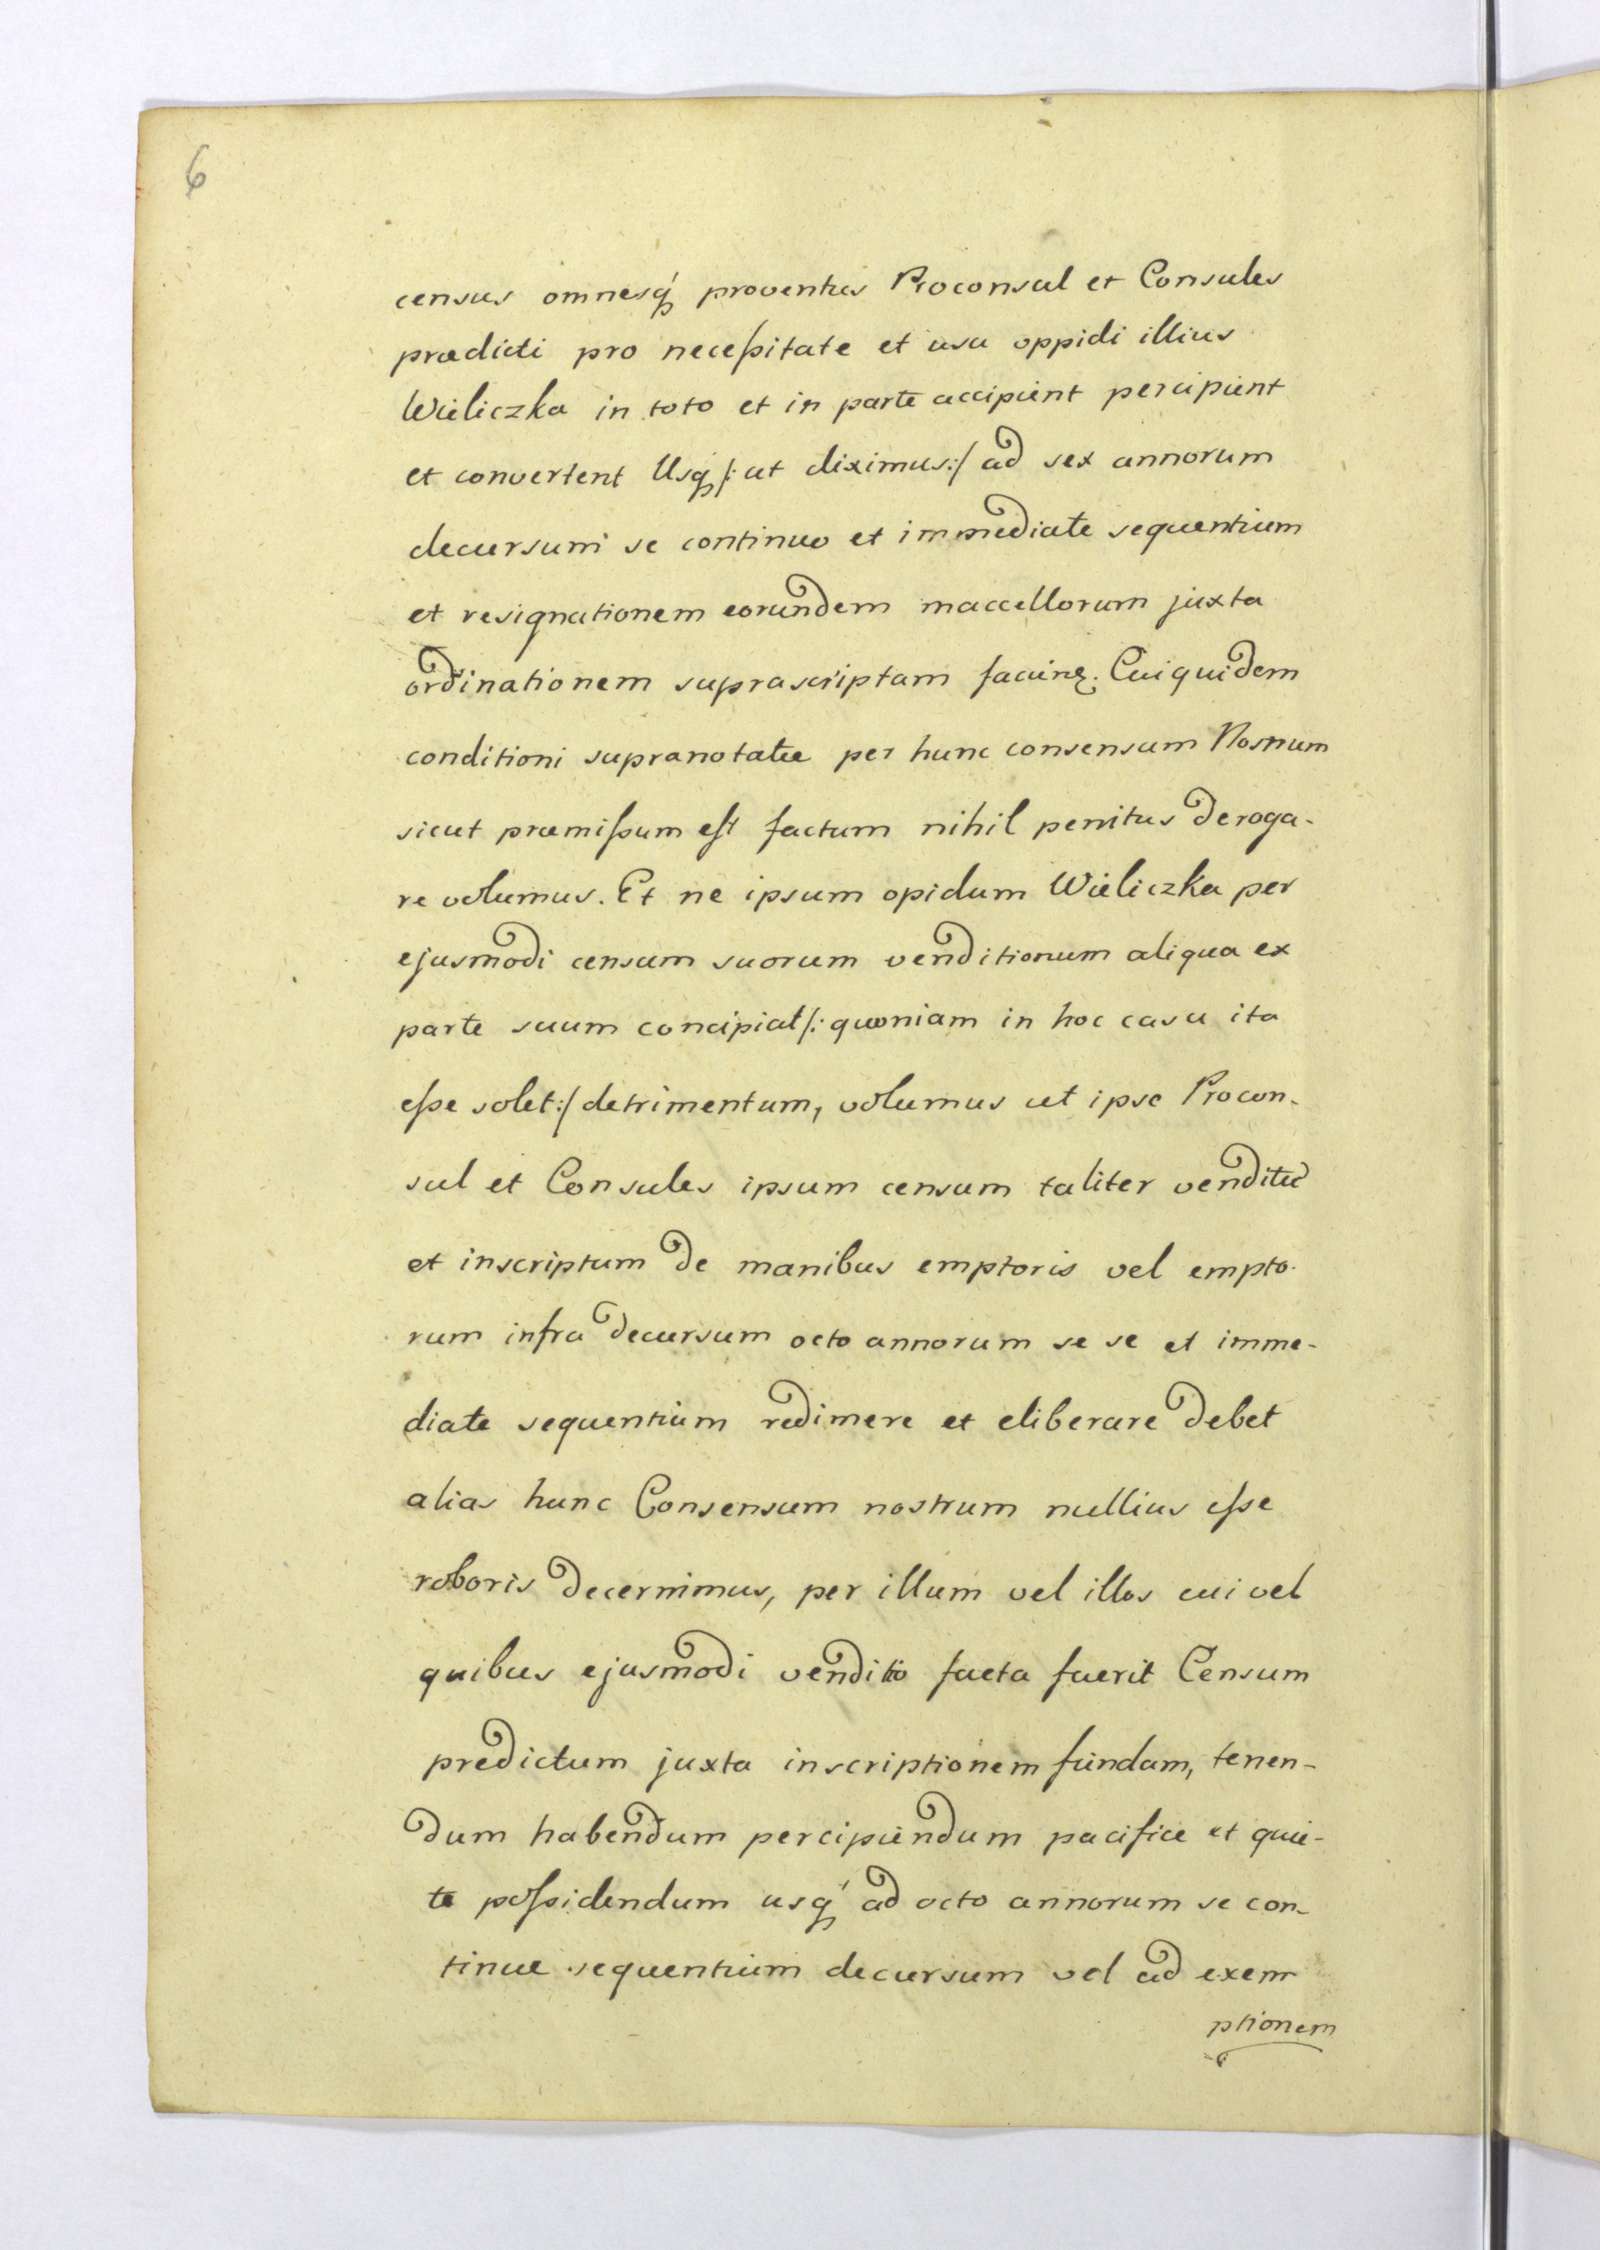 6
census omnesq́ proventus Proconsul et Consules
prædicti pro neceſsitate et usu oppidi illius
Wieliczka in toto et in parte accipient percipient
et convertent Usq /: ut diximus :/ ad sex annorum
decursum se continuo et immediate sequentium
et resignationem eorundem maccellorum juxta
ordinationem suprascriptam Cuiquidem
conditioni supranotatæ per hunc consensum Nostrum
sicut præmiſsum eſt factum nihil penitus deroga-
re volumus. Et ne ipsum opidum Wieliczka per
ejusmodi censum suorum venditionum aliqua ex
parte suum concipiat /: quoniam in hoc casu ita
eſse solet :/ detrimentum, volumus ut ipse Procon-
sul et Consules ipsum censum taliter venditū
et inscriptum de manibus emptoris vel empto-
rum infra decursum octo annorum se se et imme-
diate sequentium redimere et eliberare debet
alias hunc Consensum nostrum nullius eſse
roboris decernimus, per illum vel illos cui vel
quibus ejusmodi venditio facta fuerit Censum
predictum juxta inscriptionem fundam, tenen-
dum habendum percipiendum pacifice et quie-
te poſsidendum usq́ ad octo annorum se con-
tinue sequentium decursum vel ad exem
ptionem